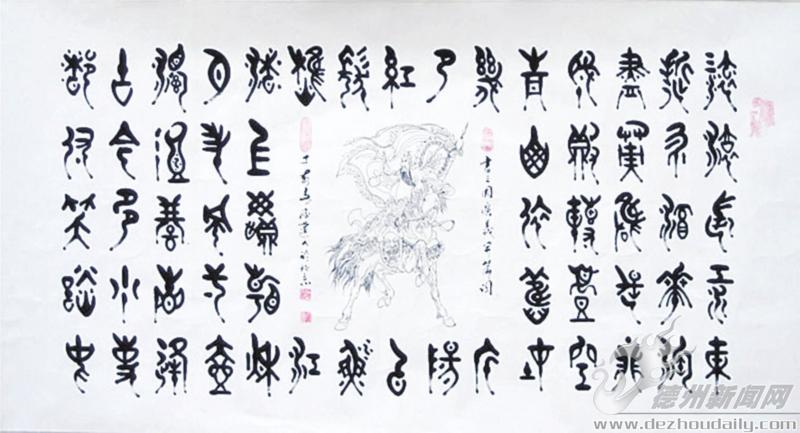 滚滚长江东
逝水浪花淘
尽英雄是非
成败转头空
青山依旧在
几度
夕阳
红白
发渔
樵江
渚上惯看秋
月春风一壶
浊酒喜相逢
古今多少事
都付笑谈中
书三国演义开篇词
德州新闻网
www.dezhoudaily.com